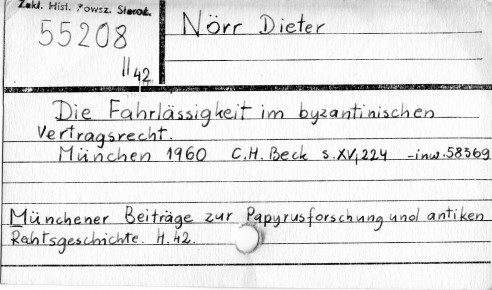 Zakł. Hist. Powsz. Staroż.
55208
II 42
Nörr Dieter
Die Fahrlässigkeit im byzantinischen
Vertragsrecht.
München 1960 C.H. Beck s. XV, 224 -inw. 58369
Münchener Beiträge zur Papyrusforschung und antiken
Rehtsgeschichte. H. 42.